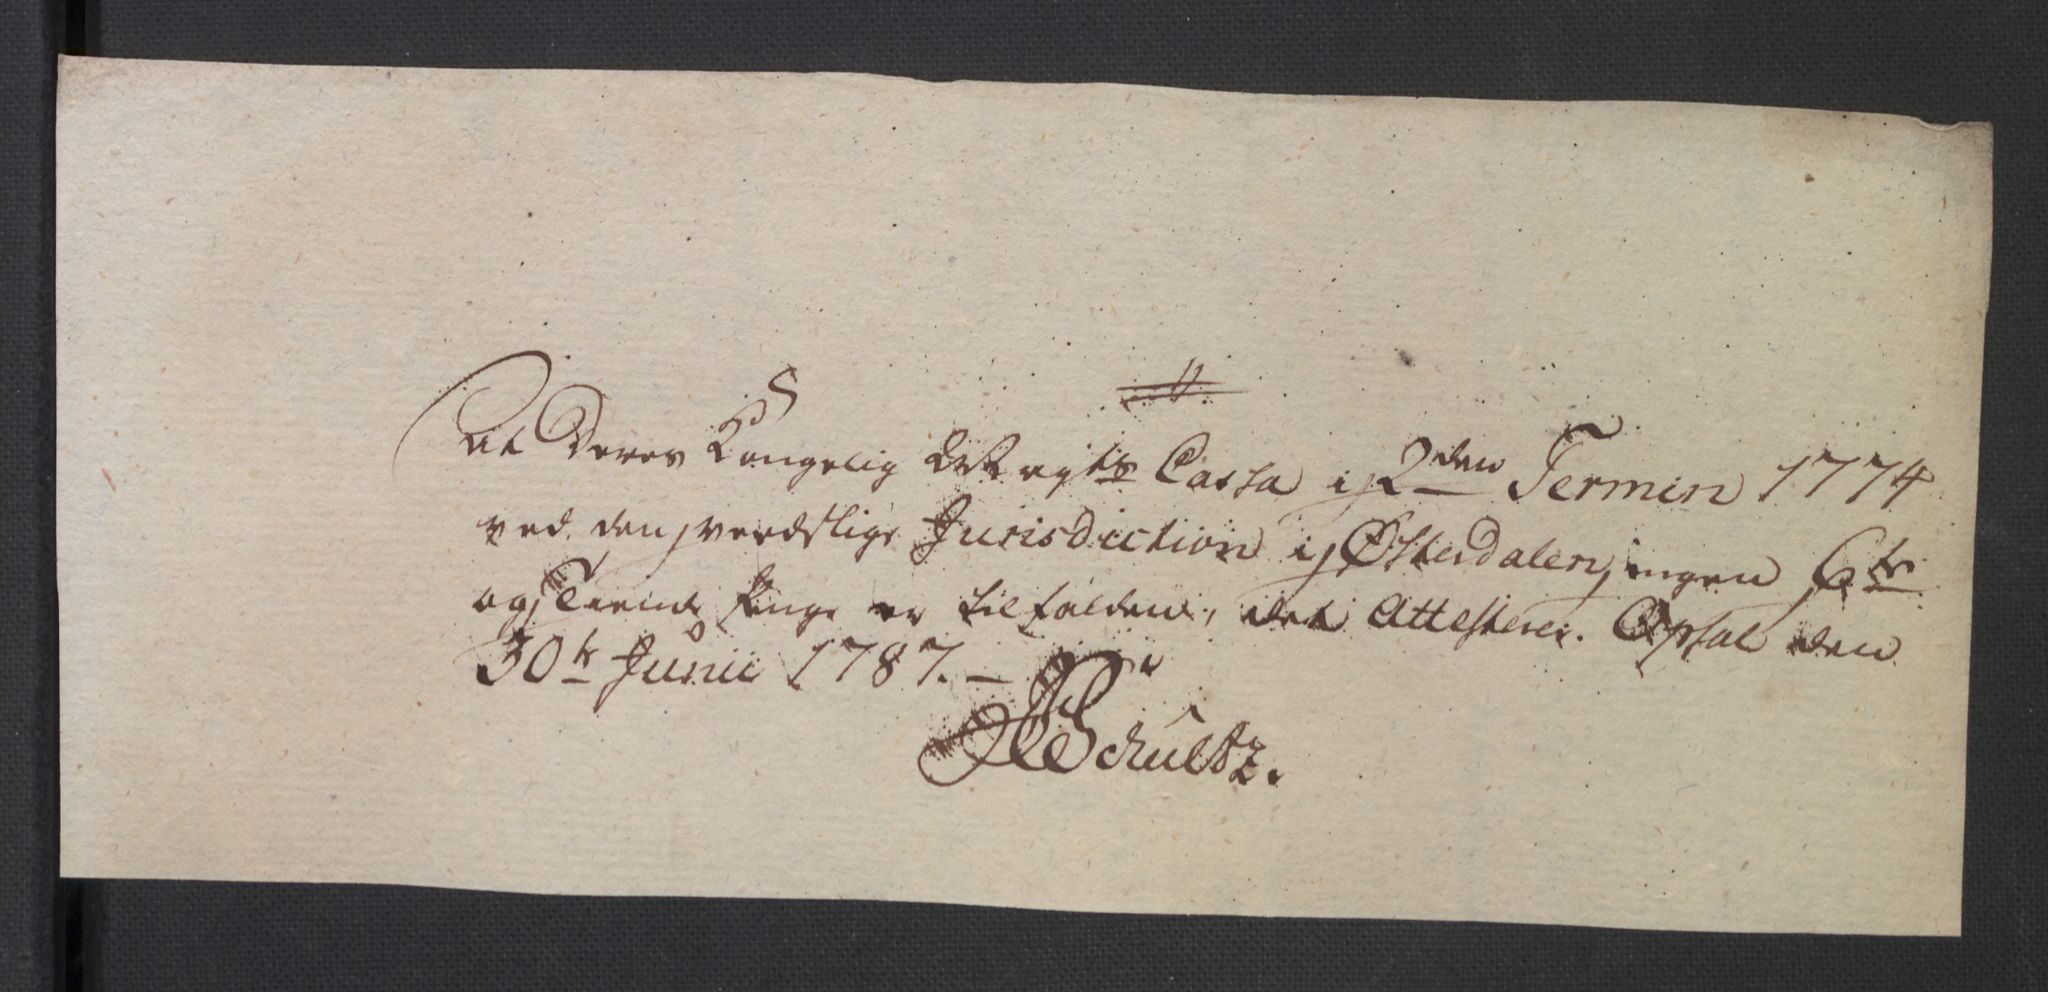 At Deres Kongelig Cassa i 2den Termin 1774
ved den verdslige Jurisdiction i Østerdalen, ingen 6te
og Tiende Penge er tilfalden, det Attesterer. Opsal den
30te Junii 1787. —
Schultz.